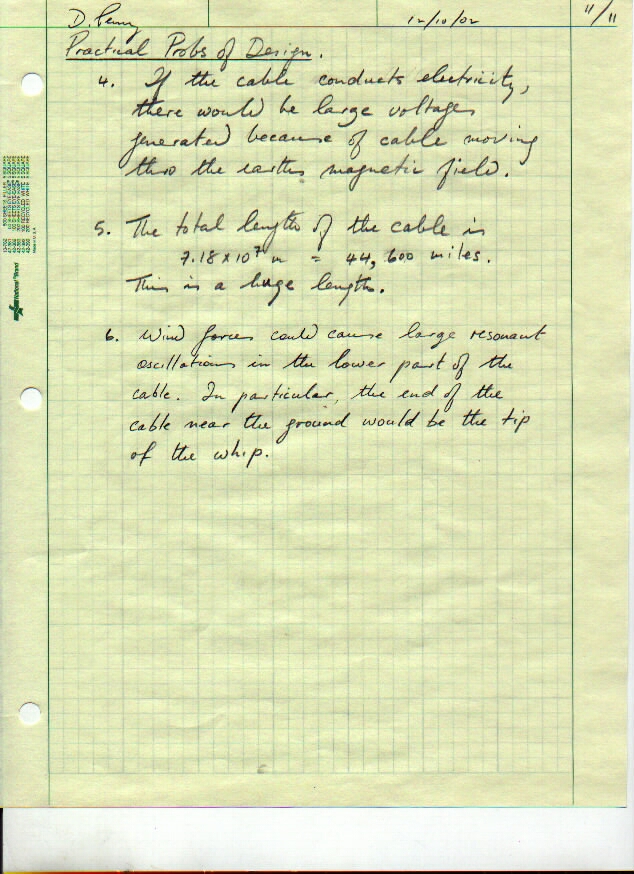 D. Perry 12/10/02 11/11
Practical Probs of Design.
4. If the cable conducts electricity,
there would be large voltages
generated because of cable moving
thro the earths magnetic field.
5. The total length of the cable is
7.18 x 10⁷ m = 44,600 miles.
This is a huge length.
6. Wind forces could cause large resonant
oscillations in the lower part of the
cable. In particular, the end of the
cable near the ground would be the tip
of the whip.
National Brand